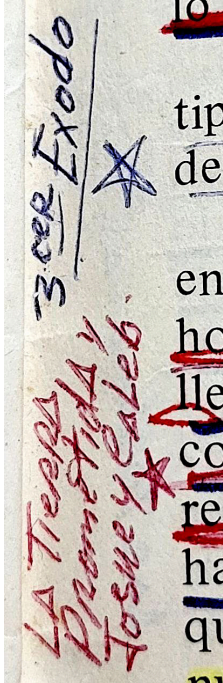 3 cer Exodo
LA TIERRA
Prometida y
Josue y Caleb.
lo
tip
de
en
ho
lle
co
re
ha
qu